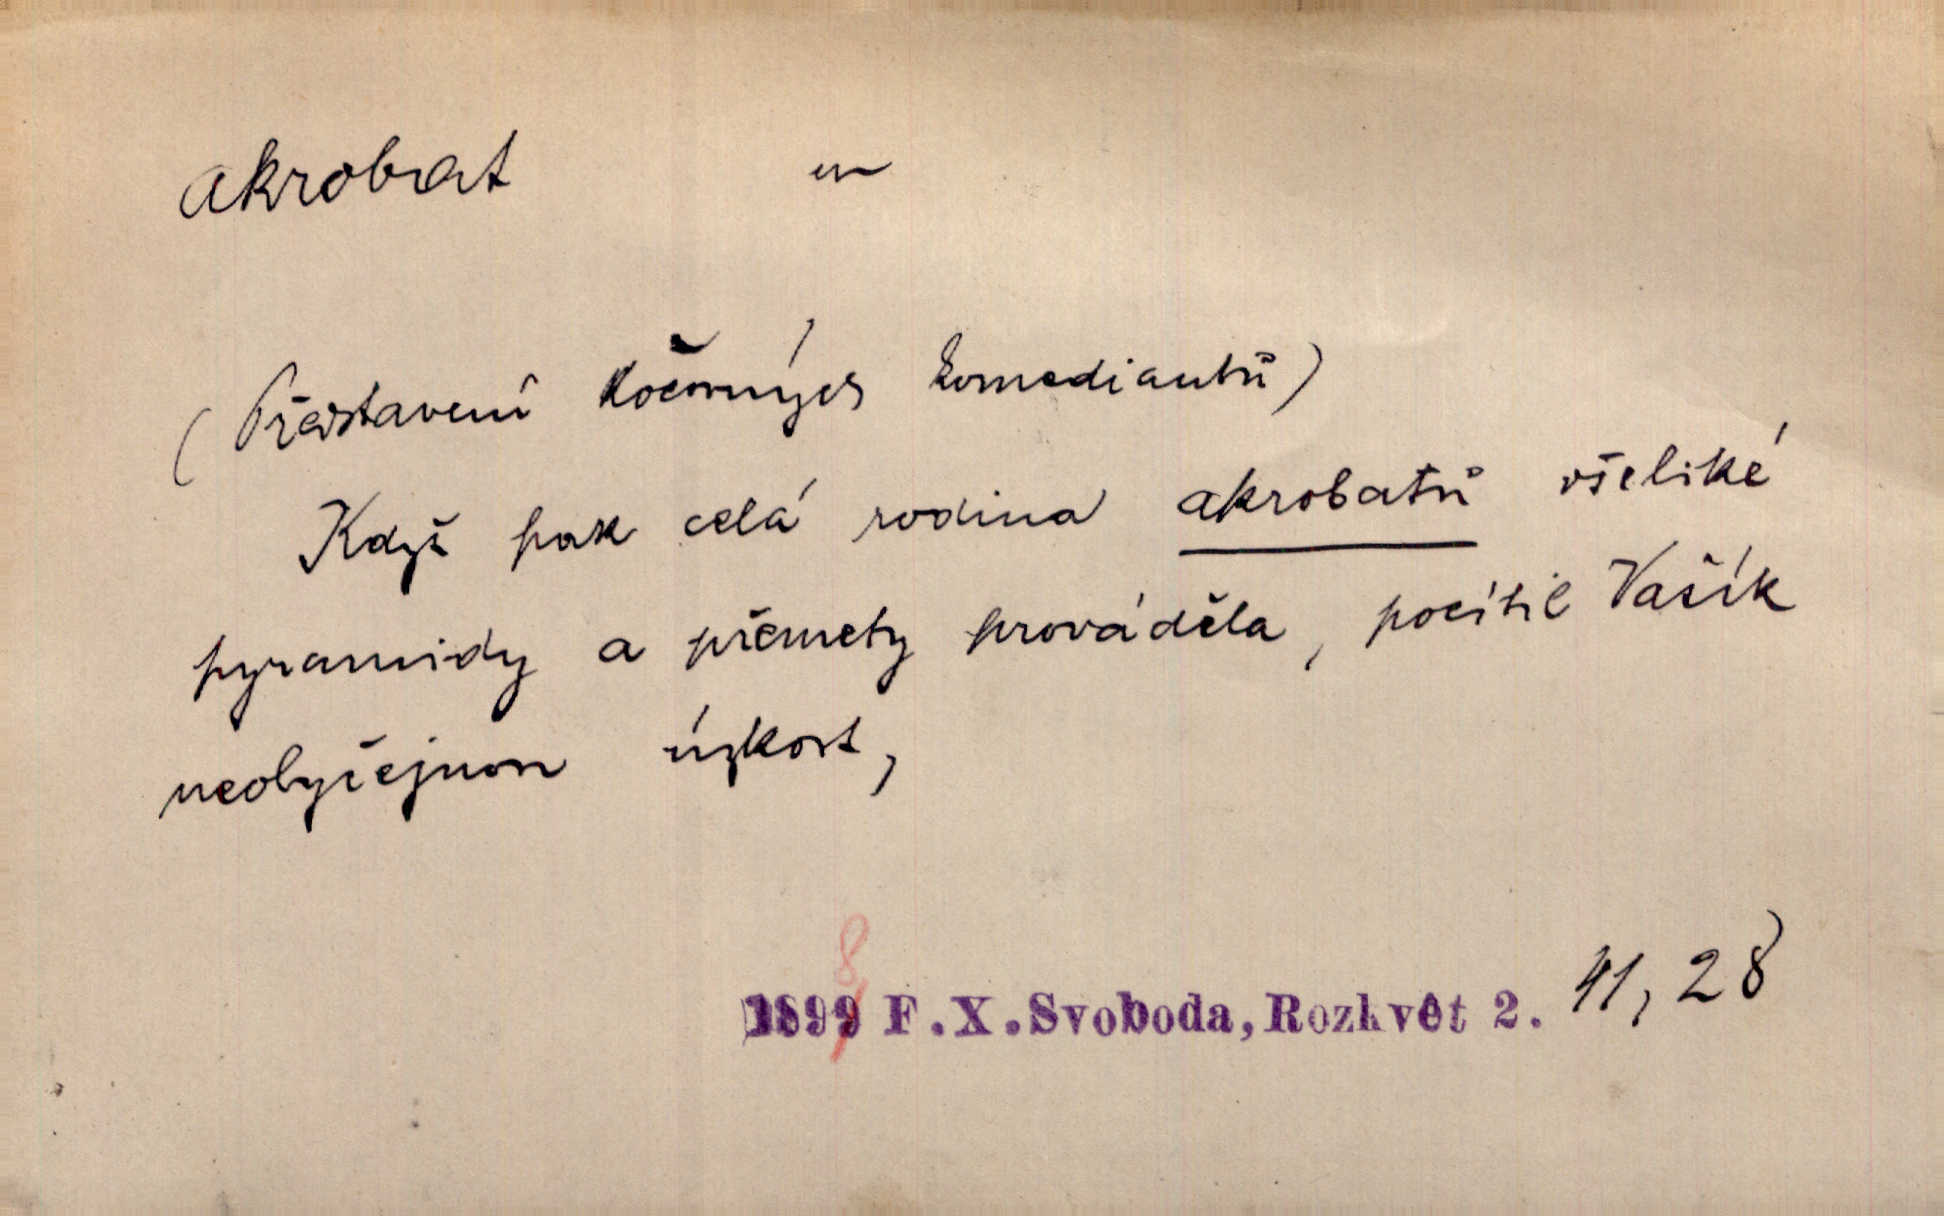 akrobat m
(Představení kočovných komediantů)
Když pak celá rodina akrobatů všeliké
pyramidy a přemety prováděla, pocítil Vašík
neobyčejnou úzkost,
8
1899 F.X.Svoboda, Rozkvět 2. 41, 28